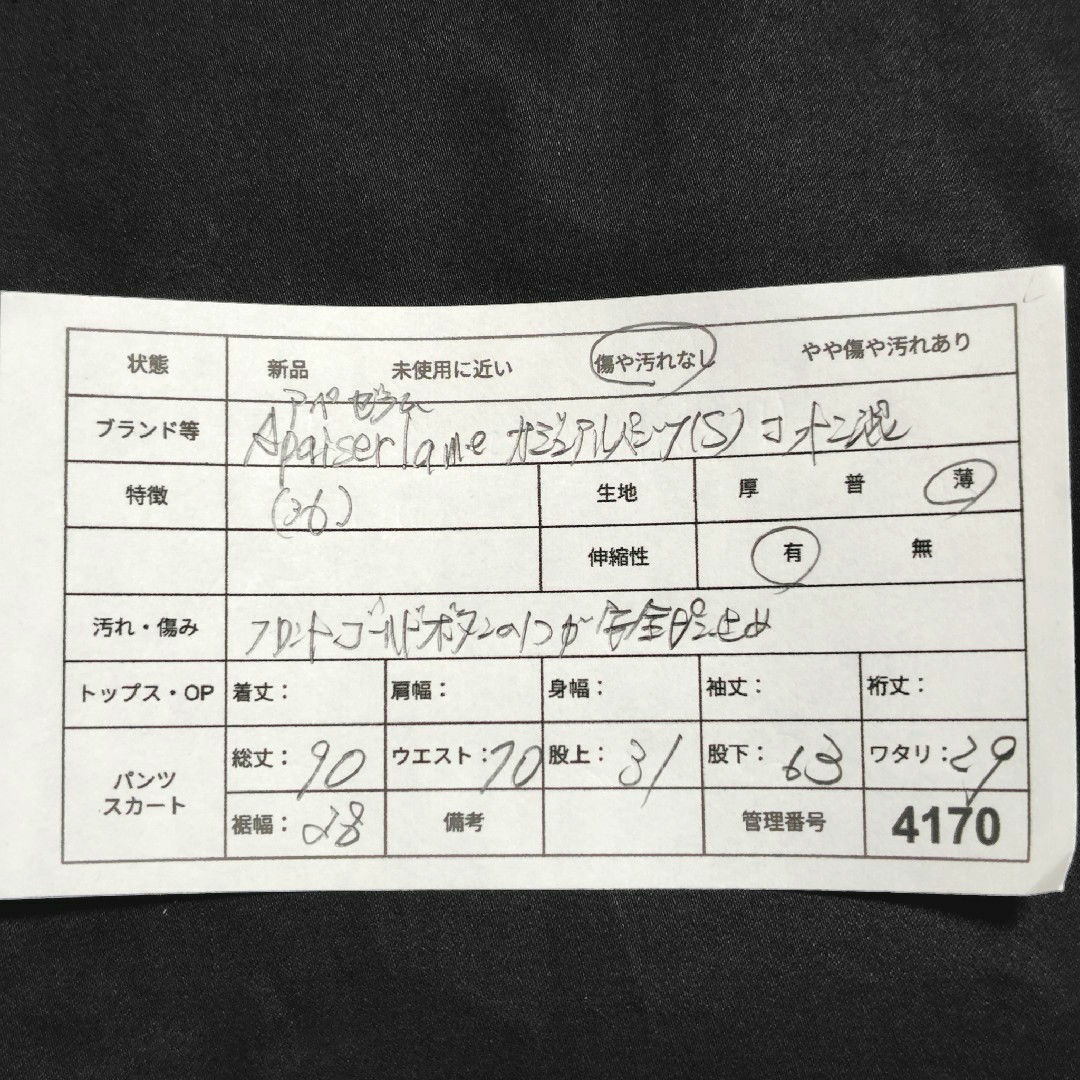 状態 新品 未使用に近い 傷や汚れなし やや傷や汚れあり
アペゼラム
ブランド等 Apaiser lame カジュアルパンツ(S) コットン混
特徴 (36) 生地 厚 普 薄
伸縮性 有 無
汚れ・傷み フロントゴールドボタンの1つが安全ピン止め
トップス・OP 着丈： 肩幅： 身幅： 袖丈： 裄丈：
パンツ スカート 総丈：90 ウエスト：70 股上：31 股下：63 ワタリ：29
裾幅：28 備考 管理番号 4170